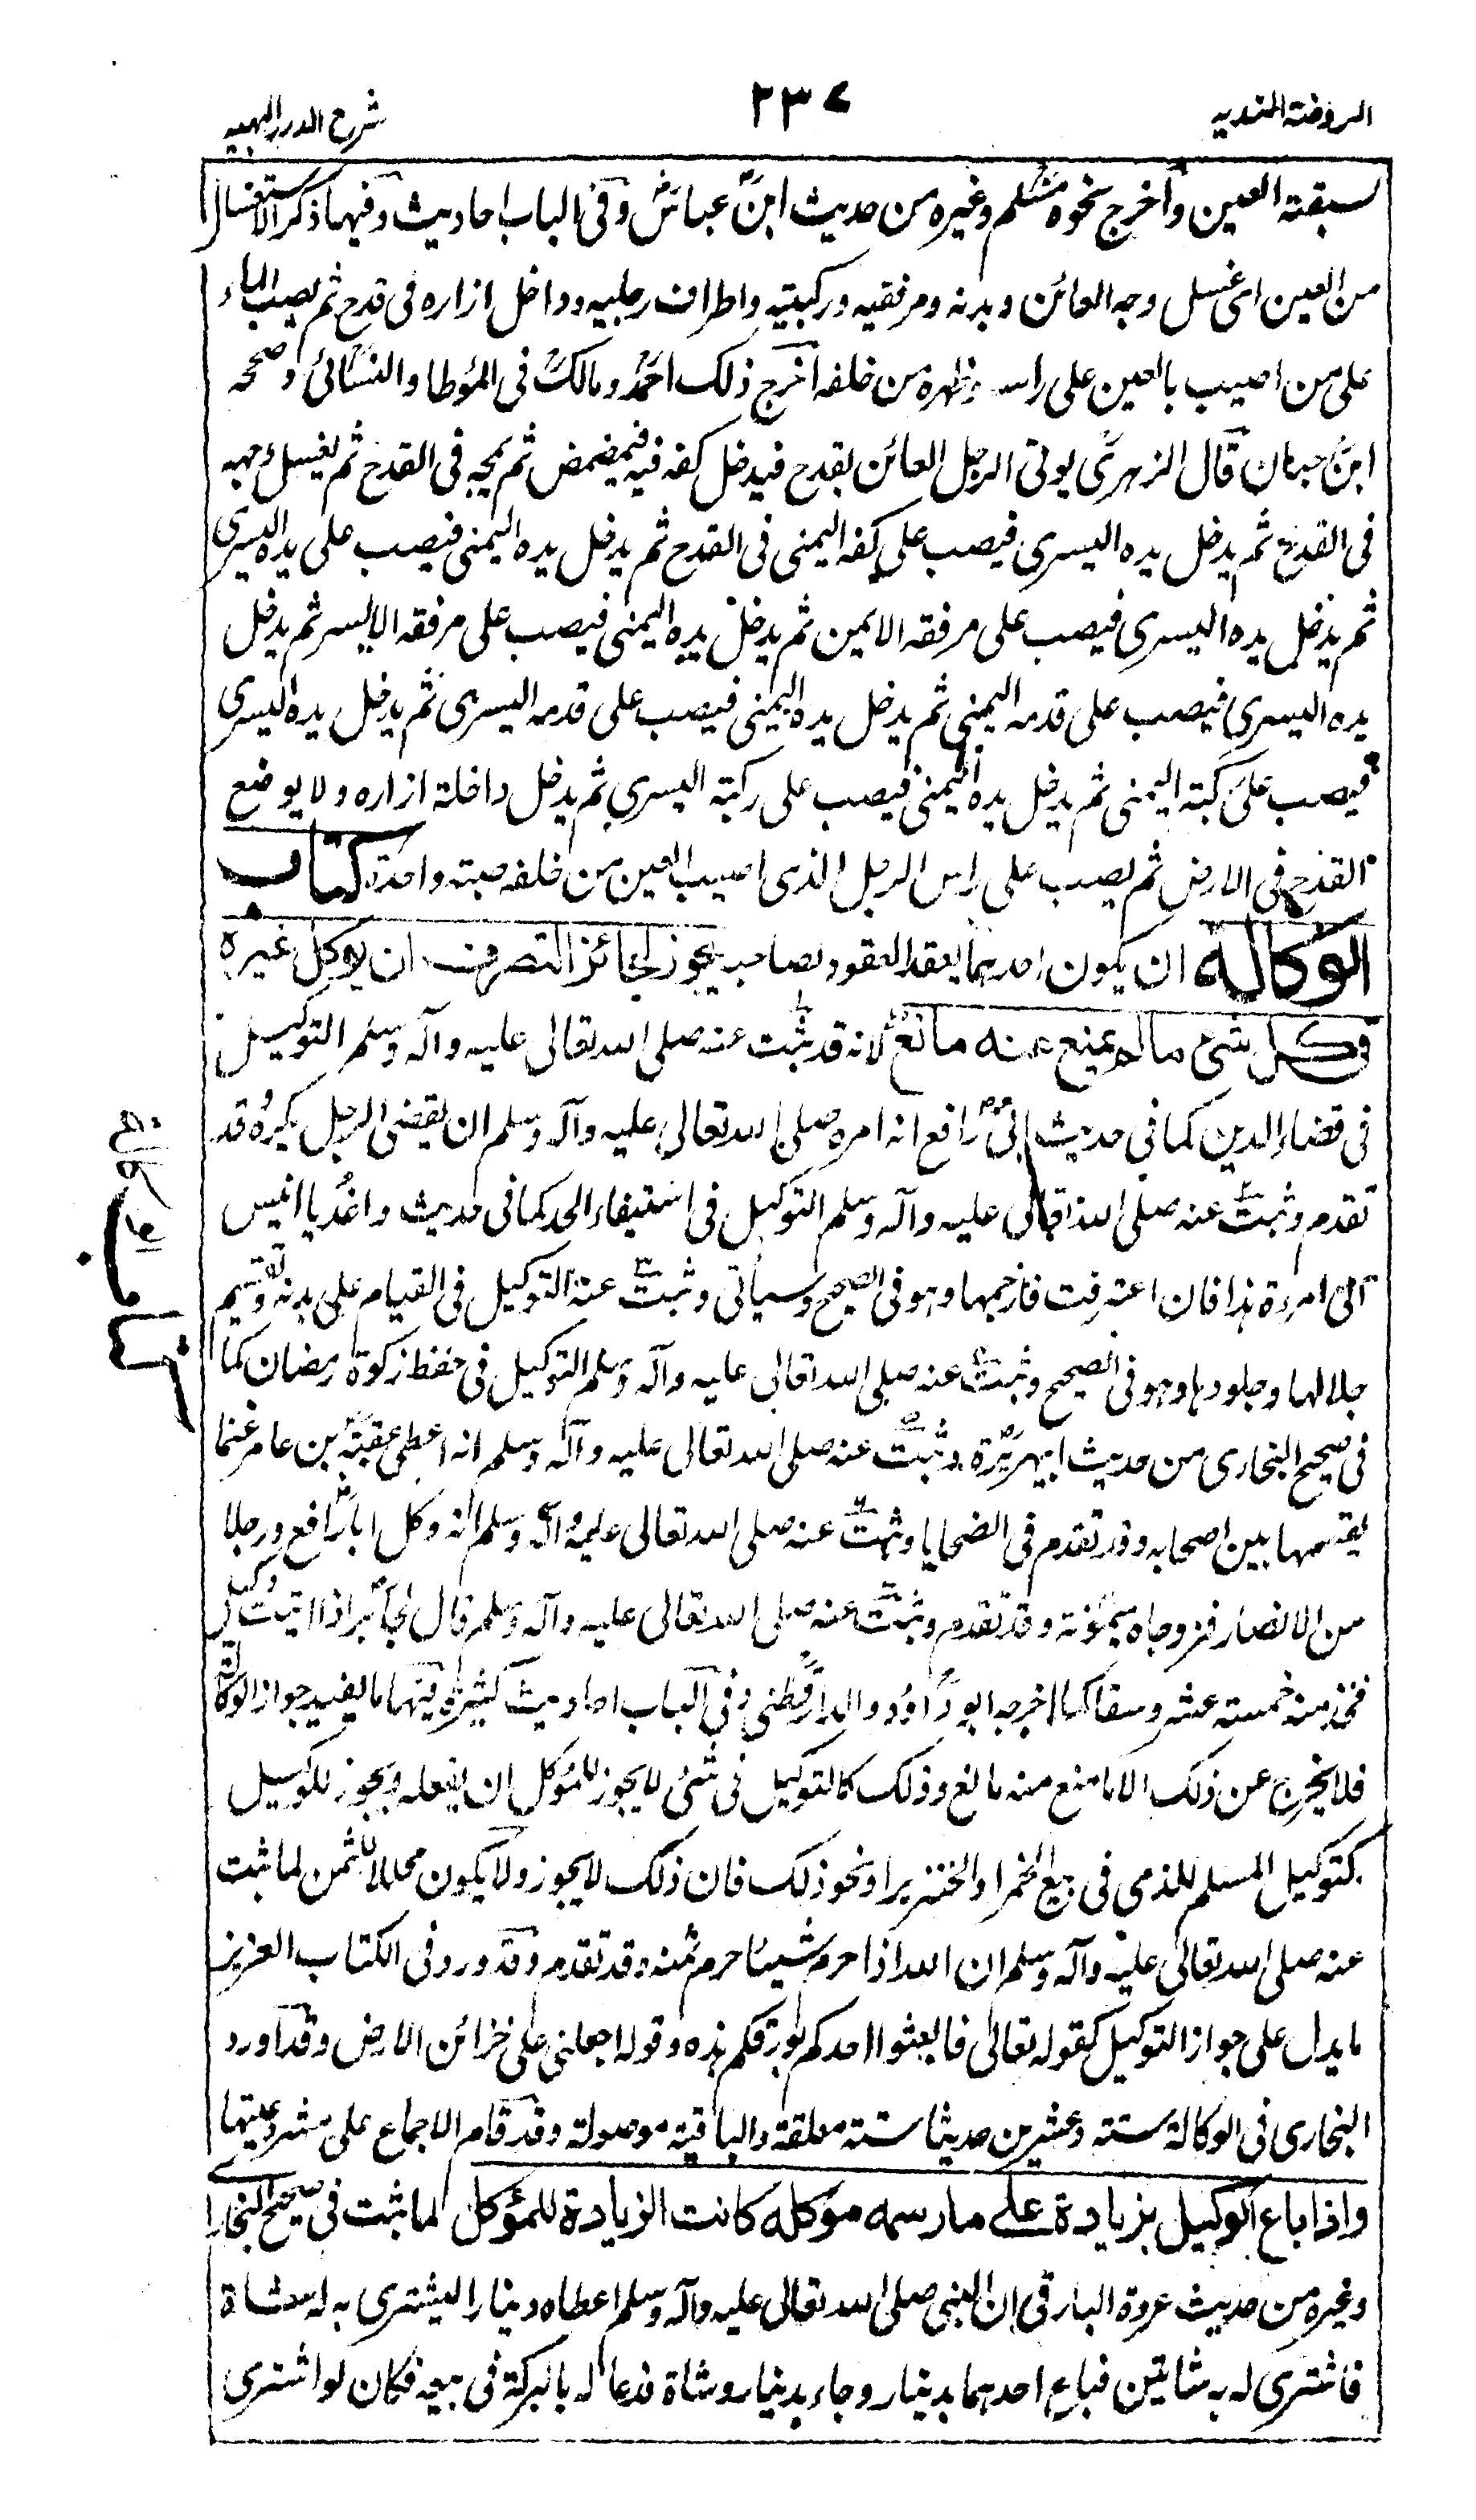 الروضة الندية
٢٣٧
شرح الدرر البهية
سبقته العين وأخرج نحوه مسلم وغيره من حديث ابن عباس وفي الباب احاديث وفيها ذكر الاستغسال
من العين اى غسل وجه العائن ويديه ومرفقيه وركبتيه واطراف رجليه وداخل ازاره فى قدح ثم يصب الماء
على من اصيب بالعين على راسه وظهره من خلفه اخرج ذلك احمد ومالك فى الموطا والنسائى وصححه
ابن حبان قال الزهرى يوتى الرجل العائن بقدح فيدخل كفه فيه فيمضمض ثم يمجه فى القدح ثم يغسل وجهه
فى القدح ثم يدخل يده اليسرى فيصب على كفه اليمنى فى القدح ثم يدخل يده اليمنى فيصب على يده اليسرى
ثم يدخل يده اليسرى فيصب على مرفقه الايمن ثم يدخل يده اليمنى فيصب على مرفقه الايسر ثم يدخل
يده اليسرى فيصب على قدمه اليمنى ثم يدخل يده اليمنى فيصب على قدمه اليسرى ثم يدخل يده اليسرى
فيصب على ركبته اليمنى ثم يدخل يده اليمنى فيصب على ركبته اليسرى ثم يدخل داخلة ازاره ولا يوضع
القدح فى الارض ثم يصب على راس الرجل الذى اصيب بالعين من خلفه صبة واحدة كتاب
الوكالة ان يكون احدهما يعقد العقود لصاحبه يجوز لجائز التصرف ان يوكل غيره
فى كل شئ مالم يمنع عنه مانع لانه قد ثبت عنه صلى الله تعالى عليه وآله وسلم التوكيل
فى قضاء الدين كما فى حديث ابى رافع انه امره صلى الله تعالى عليه وآله وسلم ان يقضى الرجل بكره وقد
تقدم وثبت عنه صلى الله تعالى عليه وآله وسلم التوكيل فى استيفاء الحد كما فى حديث واغد يا انيس
الى امرءة هذا فان اعترفت فارجمها وهو فى الصحيح وسياتى وثبت عنه التوكيل فى القيام على بدنه وتقسيم
جلالها وجلودها وهو فى الصحيح وثبت عنه صلى الله تعالى عليه وآله وسلم التوكيل فى حفظ زكوة رمضان كما
فى صحيح البخارى من حديث ابيهريرة وثبت عنه صلى الله تعالى عليه وآله وسلم انه اعطى عقبة بن عامر غنما
يقسمها بين اصحابه وقد تقدم فى الضحايا وثبت عنه صلى الله تعالى عليه وآله وسلم انه وكل ابا رافع ورجلا
من الانصار فزوجاه ميمونة وقد تقدم وثبت عنه صلى الله تعالى عليه وآله وسلم قال لجابر اذا اتيت وكيلى
فخذ منه خمسة عشر وسقا كما اخرجه ابو داود والدارقطنى وفى الباب احاديث كثيرة وفيها ما يفيد جواز الوكالة
فلا يخرج عن ذلك الا ما منع منه مانع وذلك كالتوكيل فى شئ لا يجوز للموكل ان يفعله ويجوز للوكيل
كتوكيل المسلم للذمى فى بيع الخمر او الخنزير او نحو ذلك فان ذلك لا يجوز ولا يكون محللا للثمن لما ثبت
عنه صلى الله تعالى عليه وآله وسلم ان الله اذا حرم شيئا حرم ثمنه وقد تقدم وقد ورد فى الكتاب العزيز
ما يدل على جواز التوكيل كقوله تعالى فابعثوا احدكم بورقكم هذه وقوله اجعلنى على خزائن الارض وقد اورد
البخارى فى الوكالة ستة وعشرين حديثا ستة معلقة والباقية موصولة وقد قام الاجماع على مشروعيتها
واذا باع الوكيل بزيادة على ما رسمه موكله كانت الزيادة للموكل لما ثبت فى صحيح البخارى
وغيره من حديث عروة البارقى ان النبى صلى الله تعالى عليه وآله وسلم اعطاه دينارا ليشترى به له شاة
فاشترى له به شاتين فباع احدهما بدينار وجاء بدينار وشاة فدعا له بالبركة فى بيعه فكان لو اشترى